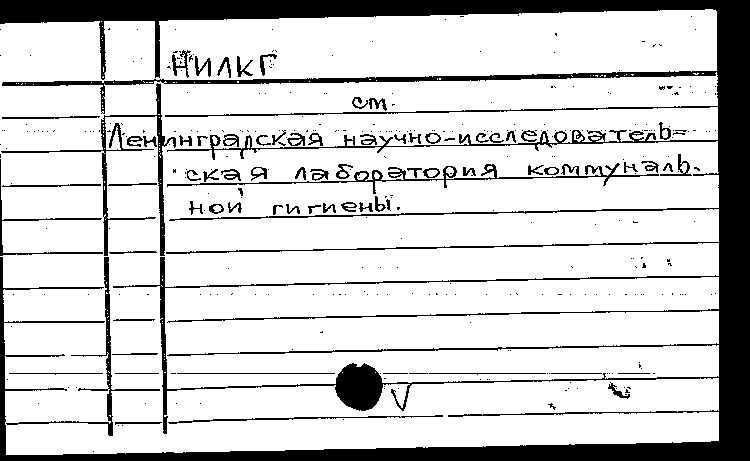 НИЛКГ
см.
Ленинградская научно-исследователь=
ская лаборатория коммуналь-
ной гигиены.
V